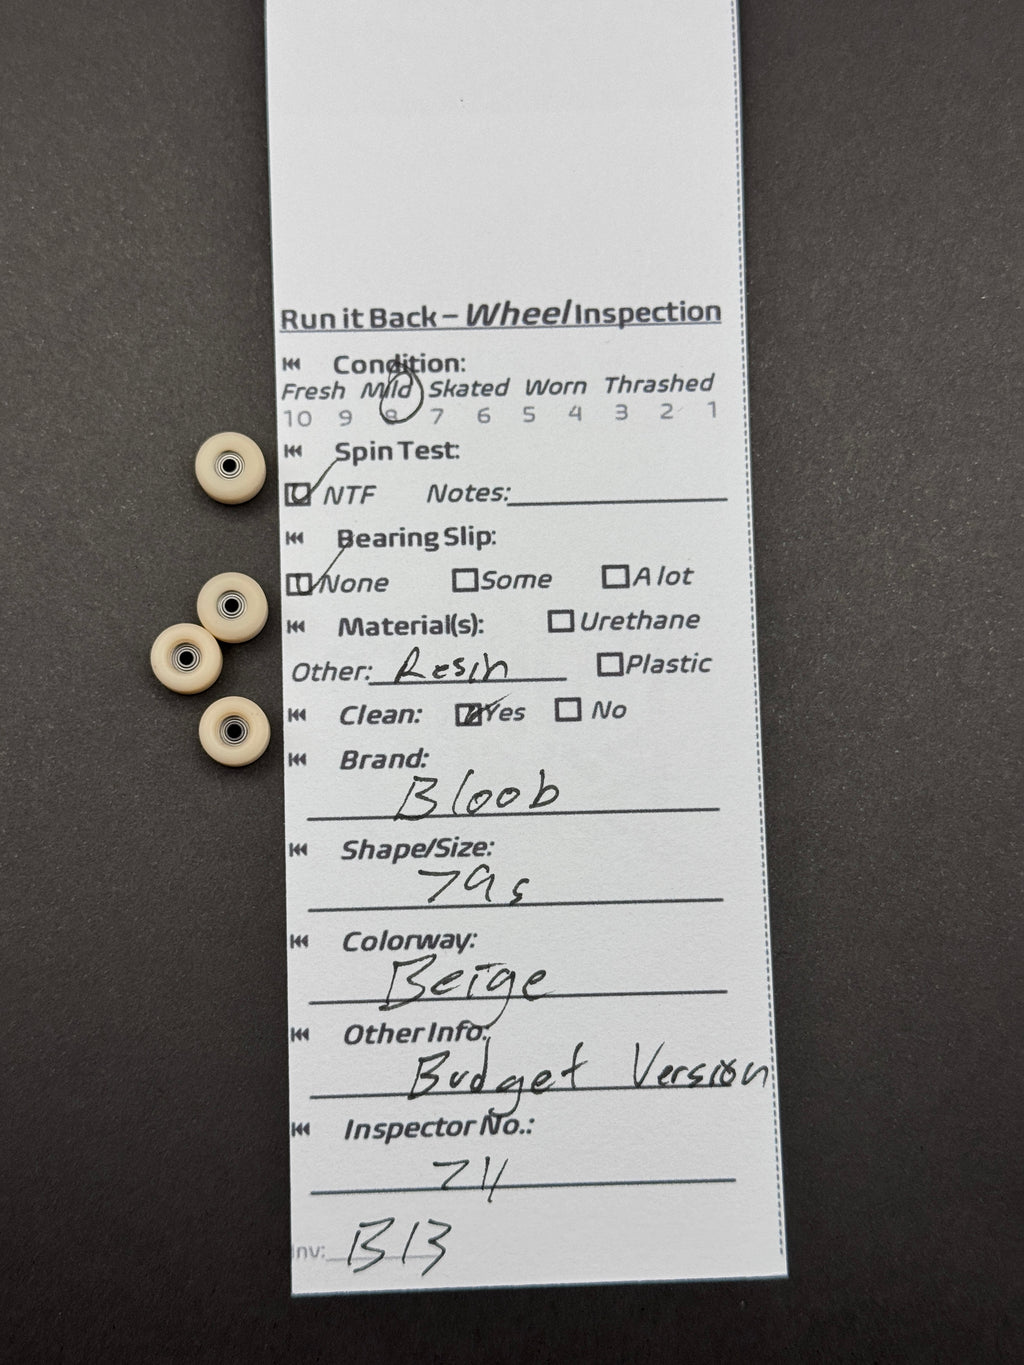 Run it Back – Wheel Inspection
Condition:
Fresh Mild Skated Worn Thrashed
10 9 8 7 6 5 4 3 2 1
Spin Test:
NTF Notes:
Bearing Slip:
None Some A lot
Material(s): Urethane
Other: Resin Plastic
Clean: Yes No
Brand:
Bloob
Shape/Size:
79s
Colorway:
Beige
Other Info:
Budget Version
Inspector No.:
Inv: B13